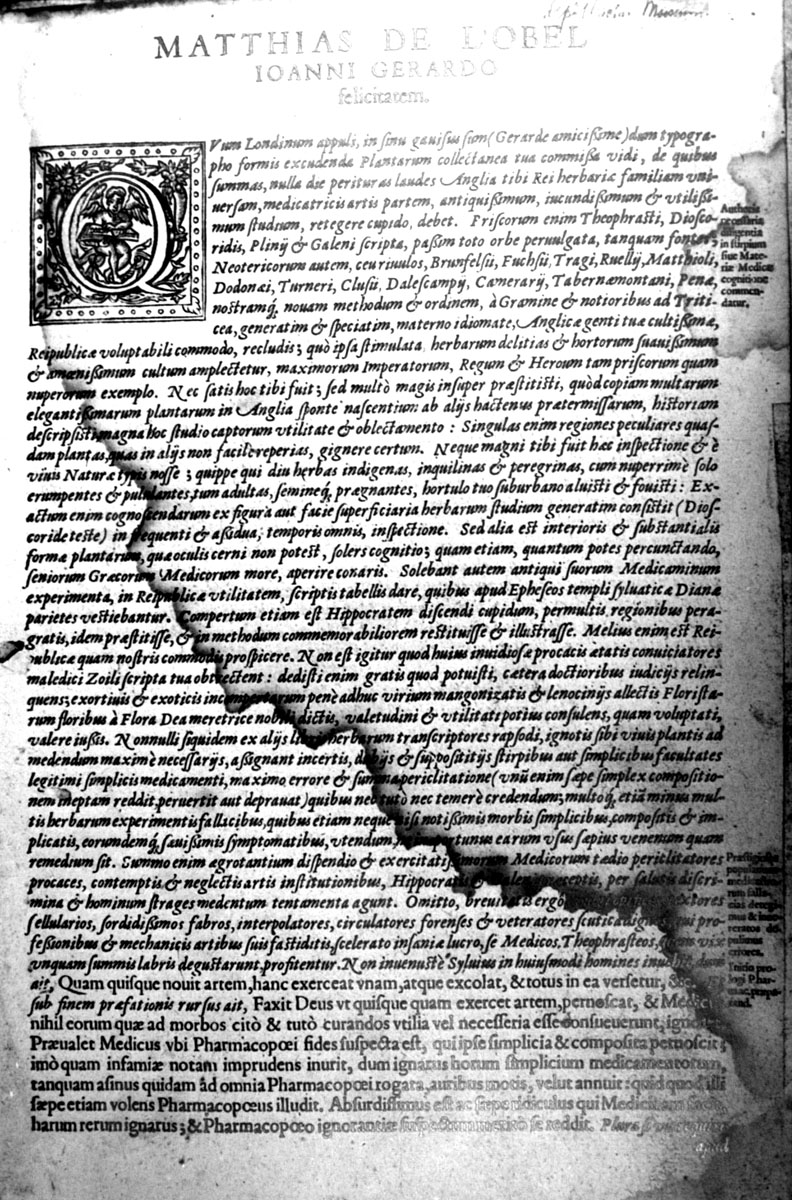 MATTHIAS DE L'OBEL
IOANNI GERARDO
felicitatem.
QVum Londinum appuli, in sinu gavisus sum (Gerarde amicissime) dum typogra-
pho formis excudenda Plantarum collectanea tua commissa vidi, de quibus
summas, nulla die perituras laudes Anglia tibi Rei herbariæ familiam vni-
uersam, medicatricis artis partem, antiquissimum, iucundissimum & vtilissi-
mum studium, retegere cupido, debet. Priscorum enim Theophrasti, Diosco-
ridis, Plinij & Galeni scripta, passim toto orbe peruulgata, tanquam fontes;
Neotericorum autem, ceu riuulos, Brunfelsii, Fuchsii, Tragi, Ruellij, Matthioli,
Dodonæi, Turneri, Clusii, Dalescampij, Camerarij, Tabernæmontani, Penæ,
nostramq, novam methodum & ordinem, à Gramine & notioribus ad Triti-
cea, generatim & speciatim, materno idiomate, Anglicæ genti tuæ cultissimæ,
Reipublicæ voluptabili commodo, recludis; quò ipsa stimulata, herbarum delitias & hortorum suauissimum
& amœnissimum cultum amplectetur, maximorum Imperatorum, Regum & Heroum tam priscorum quam
nuperorum exemplo. Nec satis hoc tibi fuit; sed multò magis insuper præstitisti, quòd copiam multarum
elegantissimarum plantarum in Anglia sponte nascentium ab alijs hactenus prætermissarum, historiam
descripsisti, magna hoc studio captorum vtilitate & oblectamento: Singulas enim regiones peculiares quas-
dam plantas, quas in alijs non facilè reperias, gignere certum. Neque magni tibi fuit hæc inspectione & è
viuis Naturæ typis nosse; quippe qui diu herbas indigenas, inquilinas & peregrinas, cum nuperrimè solo
erumpentes & pululantes, tum adultas, semineq, prægnantes, hortulo tuo suburbano aluisti & fouisti: Ex-
actum enim cognoscendarum ex figura aut facie superficiaria herbarum studium generatim consistit (Dios-
coride teste) in frequenti & assidua, temporis omnis, inspectione. Sed alia est interioris & substantialis
formæ plantarum, quæ oculis cerni non potest, solers cognitio; quam etiam, quantum potes percunctando,
seniorum Græcorum Medicorum more, aperire conaris. Solebant autem antiqui suorum Medicaminum
experimenta, in Reipublicæ vtilitatem, scriptis tabellis dare, quibus apud Epheseos templi syluaticæ Dianæ
parietes vestiebantur. Compertum etiam est Hippocratem discendi cupidum, permultis regionibus pera-
gratis, idem præstitisse, & in methodum commemorabiliorem restituisse & illustrasse. Melius enim est Rei-
publicæ quam nostris commodis prospicere. Non est igitur quod huius inuidiosæ procacis ætatis conuiciatores
maledici Zoili scripta tua obtrectent: dedisti enim gratis quod potuisti, cætera doctioribus iudicijs relin-
quens; exortiuis & exoticis incompertarum penè adhuc virium mangonizatis & lenocinijs allectis Florista-
rum floribus à Flora Dea meretrice nobili dictis, valetudini & vtilitati potius consulens, quam voluptati,
valere iussis. Nonnulli siquidem ex alijs libris herbarum transcriptores rapsodi, ignotis sibi viuis plantis ad
medendum maximè necessarijs, assignant incertis, dubijs & supposititijs stirpibus aut simplicibus facultates
legitimi simplicis medicamenti, maximo errore & summa periclitatione (vnū enim sæpe simplex compositio-
nem ineptam reddit, peruertit aut deprauat) quibus nec tutò nec temerè credendum; multoq, etiā minus mul-
tis herbarum experimentis fallacibus, quibus etiam neque nisi notissimis morbis simplicibus, compositis & im-
plicatis, eorundemq, sæuissimis symptomatibus, vtendum, ne importunus earum vsus sæpius venenum quam
remedium sit. Summo enim ægrotantium dispendio & exercitatissimorum Medicorum tædio periclitatores
procaces, contemptis & neglectis artis institutionibus, Hippocratis & Galeni præceptis, per salutis discri-
mina & hominum strages medentum tentamenta agunt. Omitto, breuitatis ergò
sellularios, sordidissimos fabros, interpolatores, circulatores forenses & veteratores scutica dignos, qui pro-
fessionibus & mechanicis artibus suis fastiditis, scelerato insaniæ lucro, se Medicos Theophrasteos, quem vix
vnquam summis labris degustarunt, profitentur. Non inuenustè Syluius in huiusmodi homines inuehit, dum
ait, Quam quisque nouit artem, hanc exerceat vnam, atque excolat, & totus in ea versetur, &
sub finem præfationis rursus ait, Faxit Deus vt quisque quam exercet artem, pernoscat, & Medicus
nihil eorum quæ ad morbos citò & tutò curandos vtilia vel necesseria esse consueuerunt, ignoret
Præualet Medicus vbi Pharmacopœi fides suspecta est, qui ipse simplicia & composita pernoscit;
imò quam infamiæ notam imprudens inurit, dum ignarus horum simplicium medicamentorum,
tanquam asinus quidam ad omnia Pharmacopœi rogata, auribus motis, velut annuit: quid quod illi
sæpe etiam volens Pharmacopœus illudit. Absurdissimus est ac sæpe ridiculus qui Medicinam facit,
harum rerum ignarus; & Pharmacopœo ignorantiæ suspectum se reddit.
apud
Authoris
necessaria
diligentia
in stirpium
siue Mate-
riæ Medicæ
cognitione
commen-
datur.